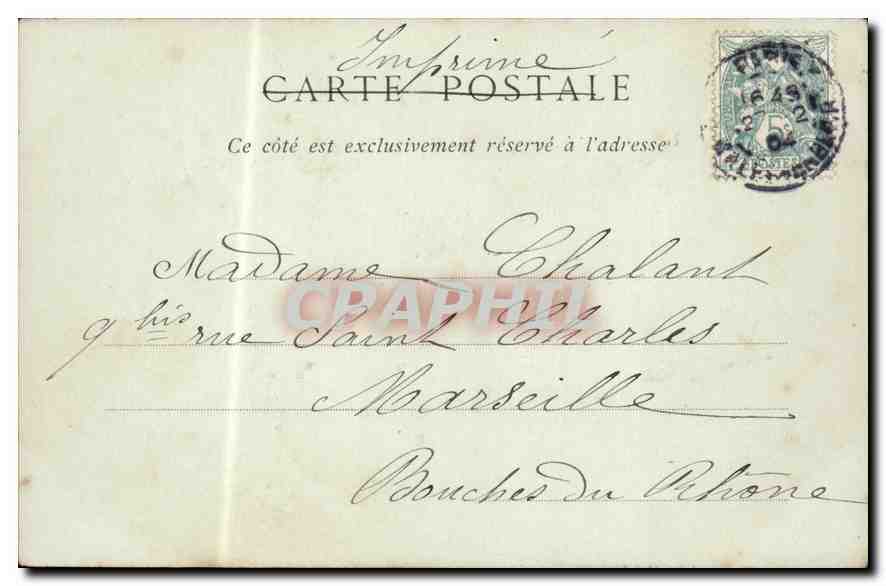 Imprimé
CARTE POSTALE
Ce côté est exclusivement réservé à l'adresse
5
POSTES
04
Madame Chalant
CPAPHIL
9 bis rue Saint Charles
Marseille
Bouches du Rhône